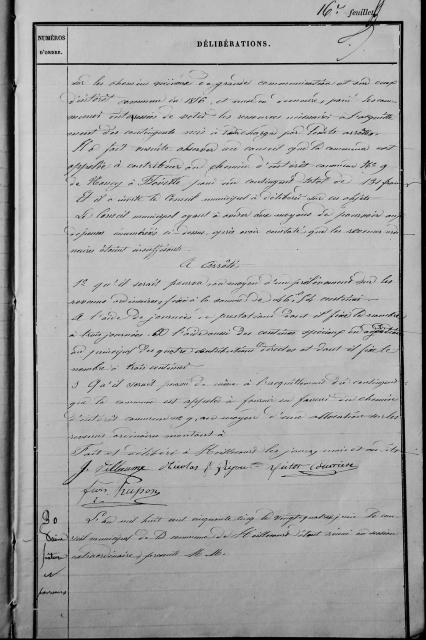 16e feuillet
NUMÉROS
D'ORDRE.
DÉLIBÉRATIONS.
sur les chemins vicinaux de grande communication et sur ceux
d'intérêt commun en 1856 et
de voter les ressources nécessaires à l'acquitte
ment des contingents mis à charge par arrêté
Il a fait ensuite observer au conseil que la commune est
appelée à contribuer au chemin d'intérêt commun No 9
de Nancy à pour un contingent total de 131 francs
Et il a invité le Conseil municipal à délibérer sur ces objets
Le Conseil municipal ayant à aviser aux moyens de pourvoir aux
dépenses énumérées ci-dessus, après avoir constaté que les revenus ordi
naires étaient insuffisants
A Arrêté
1o qu'il serait pourvu au moyen d'un prélèvement sur les
revenus ordinaires, fixé à la somme de
A l'aide de journées de prestations dont il fixe le nombre
à trois journées à l'aide aussi des centimes spéciaux
au principal des quatre contributions directes et dont il fixe le
nombre à trois centimes
Qu'il serait pourvu de même à l'acquittement du contingent
que la commune est appelée à fournir en faveur du chemin
d'intérêt commun 9, au moyen d'une allocation sur les
revenus ordinaires montant à
Fait et délibéré à les jour, mois et an
J. Villaume Nicolas
L'an mil huit cent cinquante cinq le vingt quatre juin le con
seil municipal de commune de étant réuni en session
extraordinaire à présents M. M.